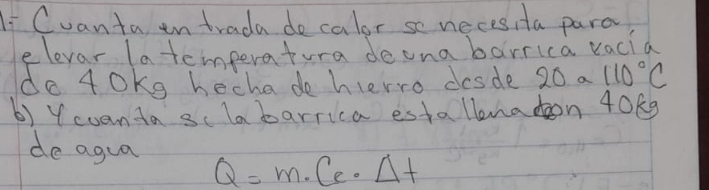 1- Cuanta entrada de calor se necesita para
elevar la temperatura de una barrica vacía
de 40kg hecha de hierro desde 20 a 110°C
b) Y cuanta si la barrica esta llena con 40kg
de agua
Q = m. Ce. Δt